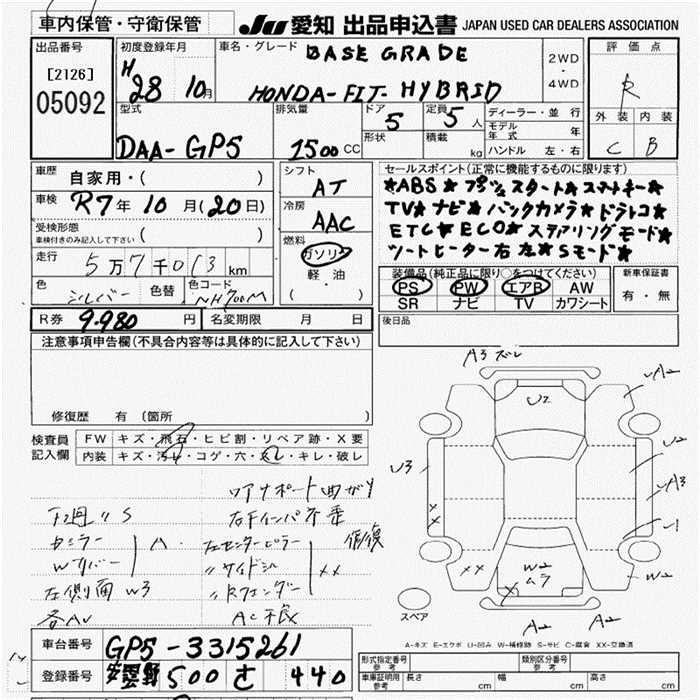 車内保管・守衛保管
JU 愛知 出品申込書 JAPAN USED CAR DEALERS ASSOCIATION
出品番号
[2126]
05092
初度登録年月
H28 10月
車名・グレード
BASE GRADE
HONDA-FIT-HYBRID
2WD
・
4WD
評価点
R
外装 内装
C B
型式
DAA-GP5
排気量
1500 CC
ドア
5
形状
定員
5人
積載
kg
ディーラー・並行
モデル年式 年
ハンドル 左・右
車歴 自家用・( )
車検 R7年10月(20日)
受検形態
車検付きのみ記入して下さい ( )
走行 5万7千013km
色 シルバー 色替 色コード NH700M
シフト
AT
冷房
AAC
燃料
ガソリン
軽・油
( )
セールスポイント(正常に機能するものに限ります)
★ABS★プッシュスタート★スマートキー★
TV★ナビ★バックカメラ★ドラレコ★
ETC★ECO★ステアリングモード★
シートヒーター右左★Sモード★
装備品(純正品に限り○をつけてください)
PS PW エアB AW
SR ナビ TV カワシート
新車保証書
有・無
R券 9.980 円 名変期限 月 日
後日品
注意事項申告欄(不具合内容等は具体的に記入して下さい)
修復歴 有(箇所 )
検査員記入欄
FW キズ・飛石・ヒビ割・リペア跡・X要
内装 キズ・汚れ・コゲ・穴・スレ・キレ・破レ
コアサポート曲がり
下廻りS 右下インパネ
左センターピラー 修復
〃サイドシル
左側面W3 〃Rフェンダー XX
各AU AC不良
A3 ズレ
U2
A2
U2
U3
A3
U1
XX
W2
ムラ
W2
X
A2
A2
スペア
A-キズ E-エクボ U-凹み W-補修跡 S-サビ C-腐食 XX-交換済
車台番号 GP5-3315261
登録番号 500 さ 440
型式指定番号
参考
類別区分番号
参考
車庫証明用
参考
長さ cm 幅 cm 高さ cm